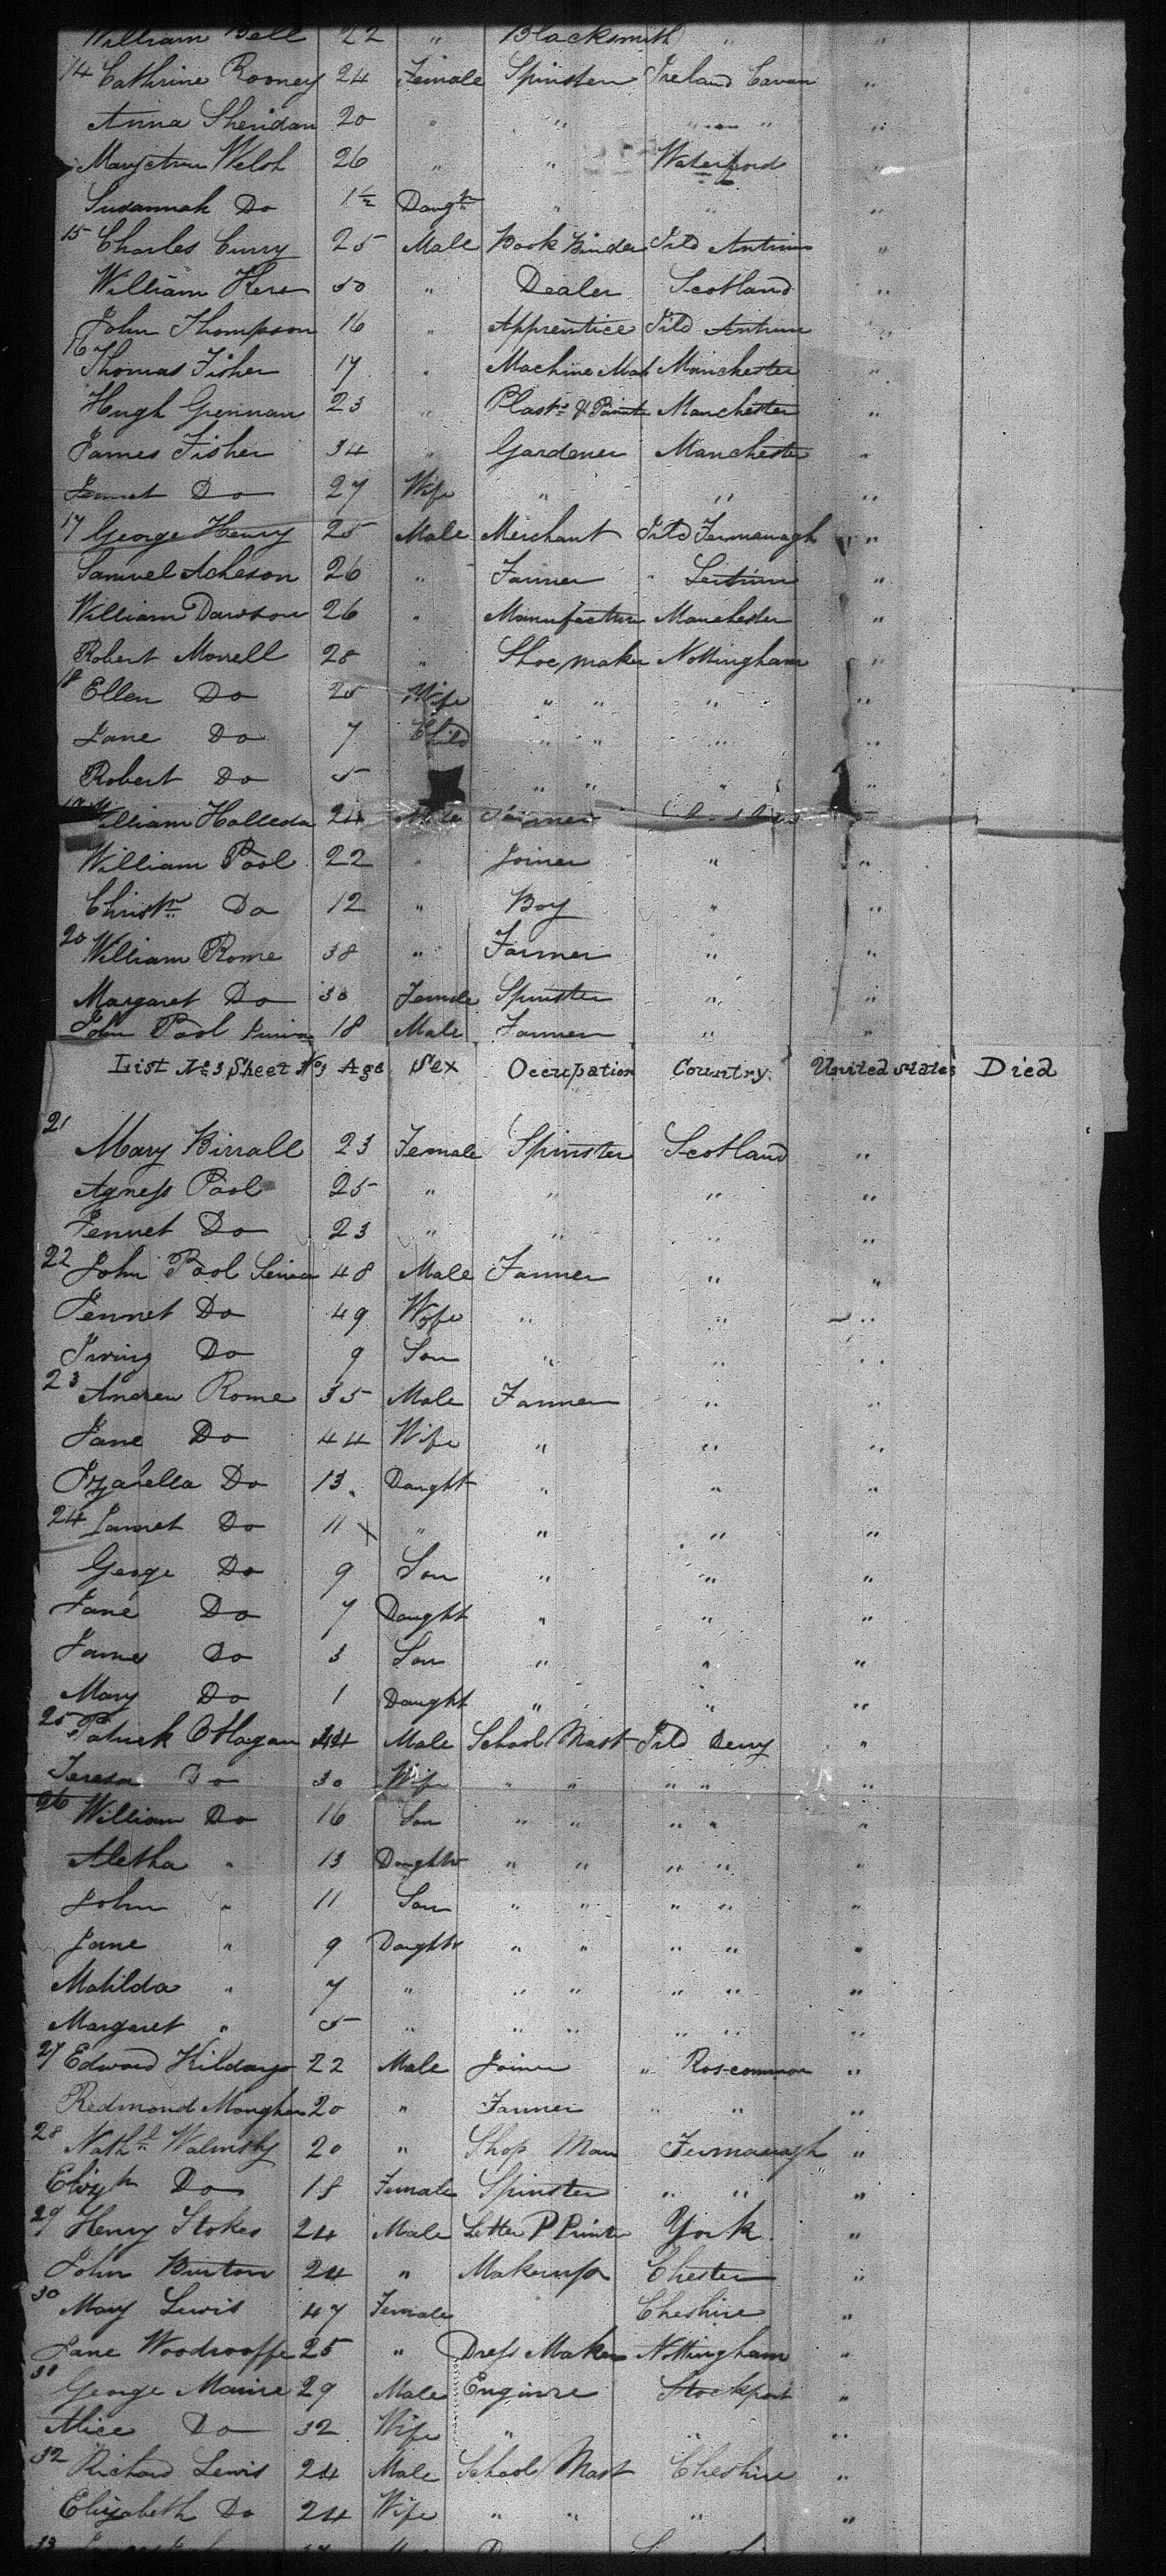 William Bell 22 " Blacksmith " "
14 Cathrine Rooney 24 Female Spinster Ireland Cavan "
Anna Sheridan 20 " " " " "
Welsh 26 " " Waterford "
Susannah Do 1 Daugtr " " "
15 Charles Curry 25 Male Book Binder Irld Antrim "
William Kerr 50 " Dealer Scotland "
John Thompson 16 " Apprentice Irld Antrim "
16 Thomas Fisher 17 " Machine Mak Manchester "
Hugh Grennan 23 " Plastr & Painter Manchester "
James Fisher 34 " Gardener Manchester "
Jennet Do 27 Wife " " "
17 George Henry 25 Male Merchant Irld Fermanagh "
Samuel Acheson 26 " Farmer " Leitrim "
William Dawson 26 " Manufacturer Manchester "
Robert Morrell 28 " Shoe maker Nottingham "
18 Ellen Do 25 Wife " " " "
Jane Do 7 Child " " " "
Robert Do 5 " " " "
19 William Halleda 24 Male Farmer
William Pool 22 " Joiner " "
Christr Do 12 " Boy " "
20 William Rome 38 " Farmer " "
Margaret Do 30 Female Spinster " "
John Pool Junior 18 Male Farmer " "
List No 3 Sheet No 3 Age Sex Occupation Country United States Died
21 Mary Birrall 23 Female Spinster Scotland "
Agness Pool 25 " " " "
Jennet Do 23 " " " "
22 John Pool Senior 48 Male Farmer " "
Jennet Do 49 Wife " " "
Irving Do 9 Son " " "
23 Andrew Rome 35 Male Farmer " "
Jane Do 44 Wife " " "
Izabella Do 13 Daught " " "
24 Jannet Do 11 X " " " "
George Do 9 Son " " "
Jane Do 7 Daught " " "
James Do 3 Son " " "
Mary Do 1 Daught " " "
25 Patrick O'Hagan 44 Male School Mast Irld Derry "
Teresa Do 30 Wife " " " " "
26 William Do 16 Son " " " " "
Aletha " 13 Daughtr " " " " "
John " 11 Son " " " " "
Jane " 9 Daughtr " " " " "
Matilda " 7 " " " " " "
Margaret " 5 " " " " " "
27 Edward Kildays 22 Male Joiner " Roscommon "
Redmond Monghan 20 " Farmer " " "
28 Nathl Walmsly 20 " Shop Man Fermanagh "
Elizh Do 18 Female Spinster " " "
29 Henry Stokes 24 Male Letter P Printr York "
John Burton 24 " Makerup Chester "
30 Mary Lewis 47 Female Cheshire "
Jane Woodrooffe 25 " Dress Maker Nottingham "
31 George Marise 29 Male Enginre Stockport "
Alice Do 32 Wife " " "
32 Richard Lewis 24 Male School Mast Cheshire "
Elizabeth Do 24 Wife " " " "
33